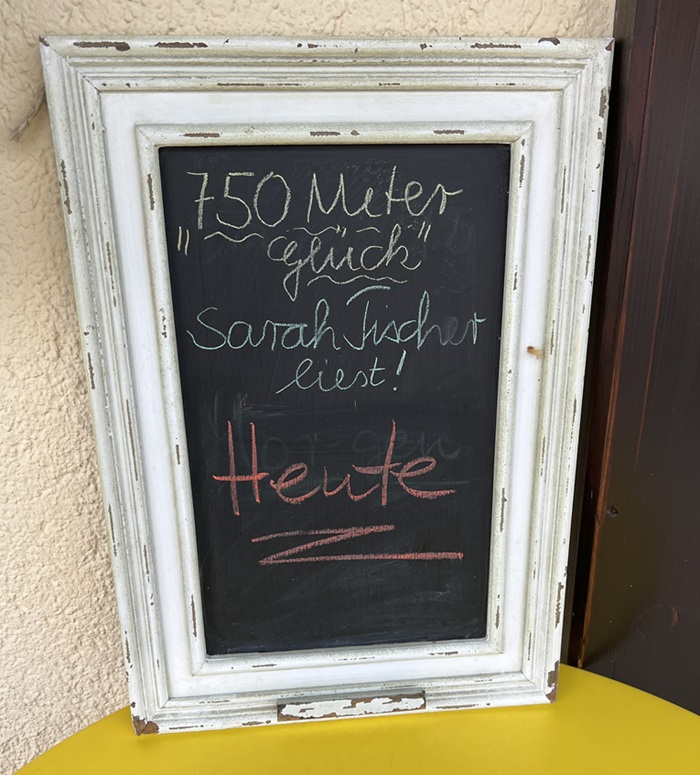 750 Meter
„Glück"
Sarah Fischer
liest!
Heute